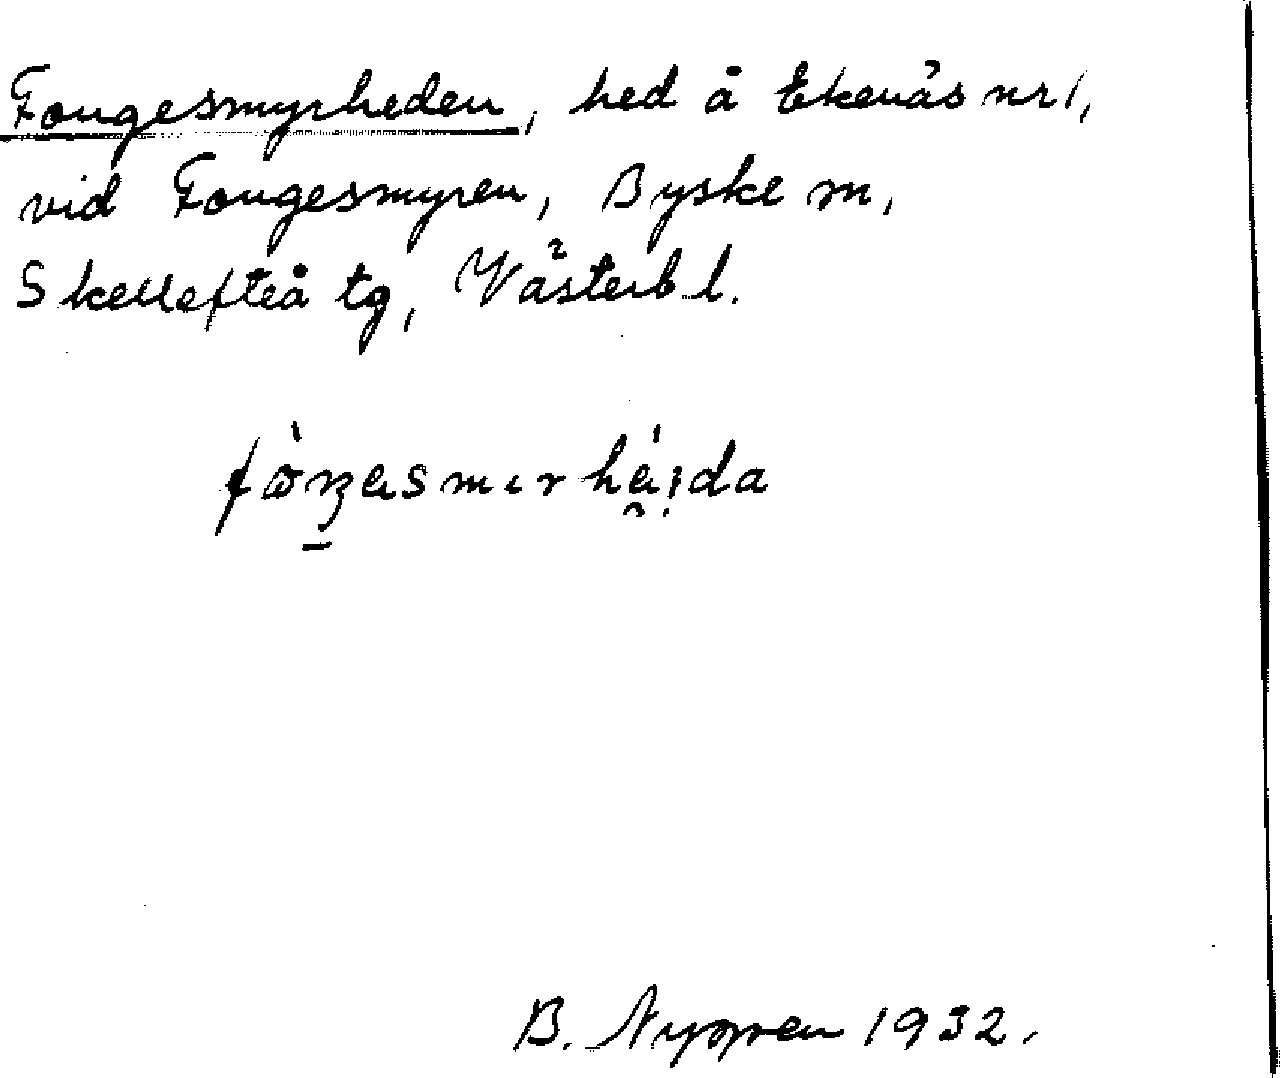 Fougesmyrheden, hed å Ekenäs nr 1,
vid Fougesmyren, Byske sn,
Skellefteå tg, Västerb. l.
B. Nygren 1932.